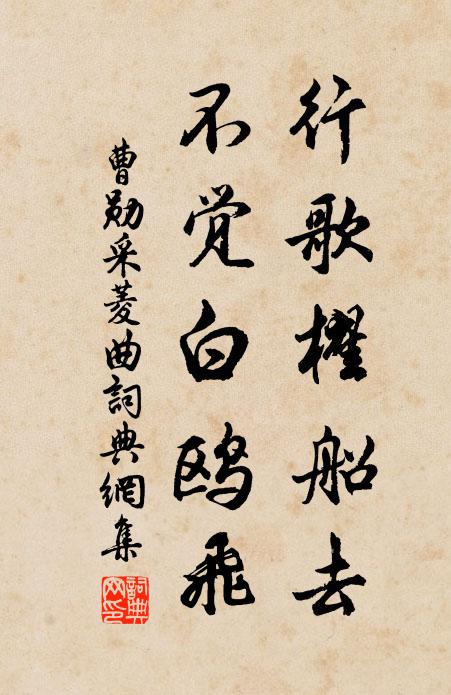 行歌櫂船去
不觉白鸥飛
曹勋采菱曲詞典網集
詞典网印